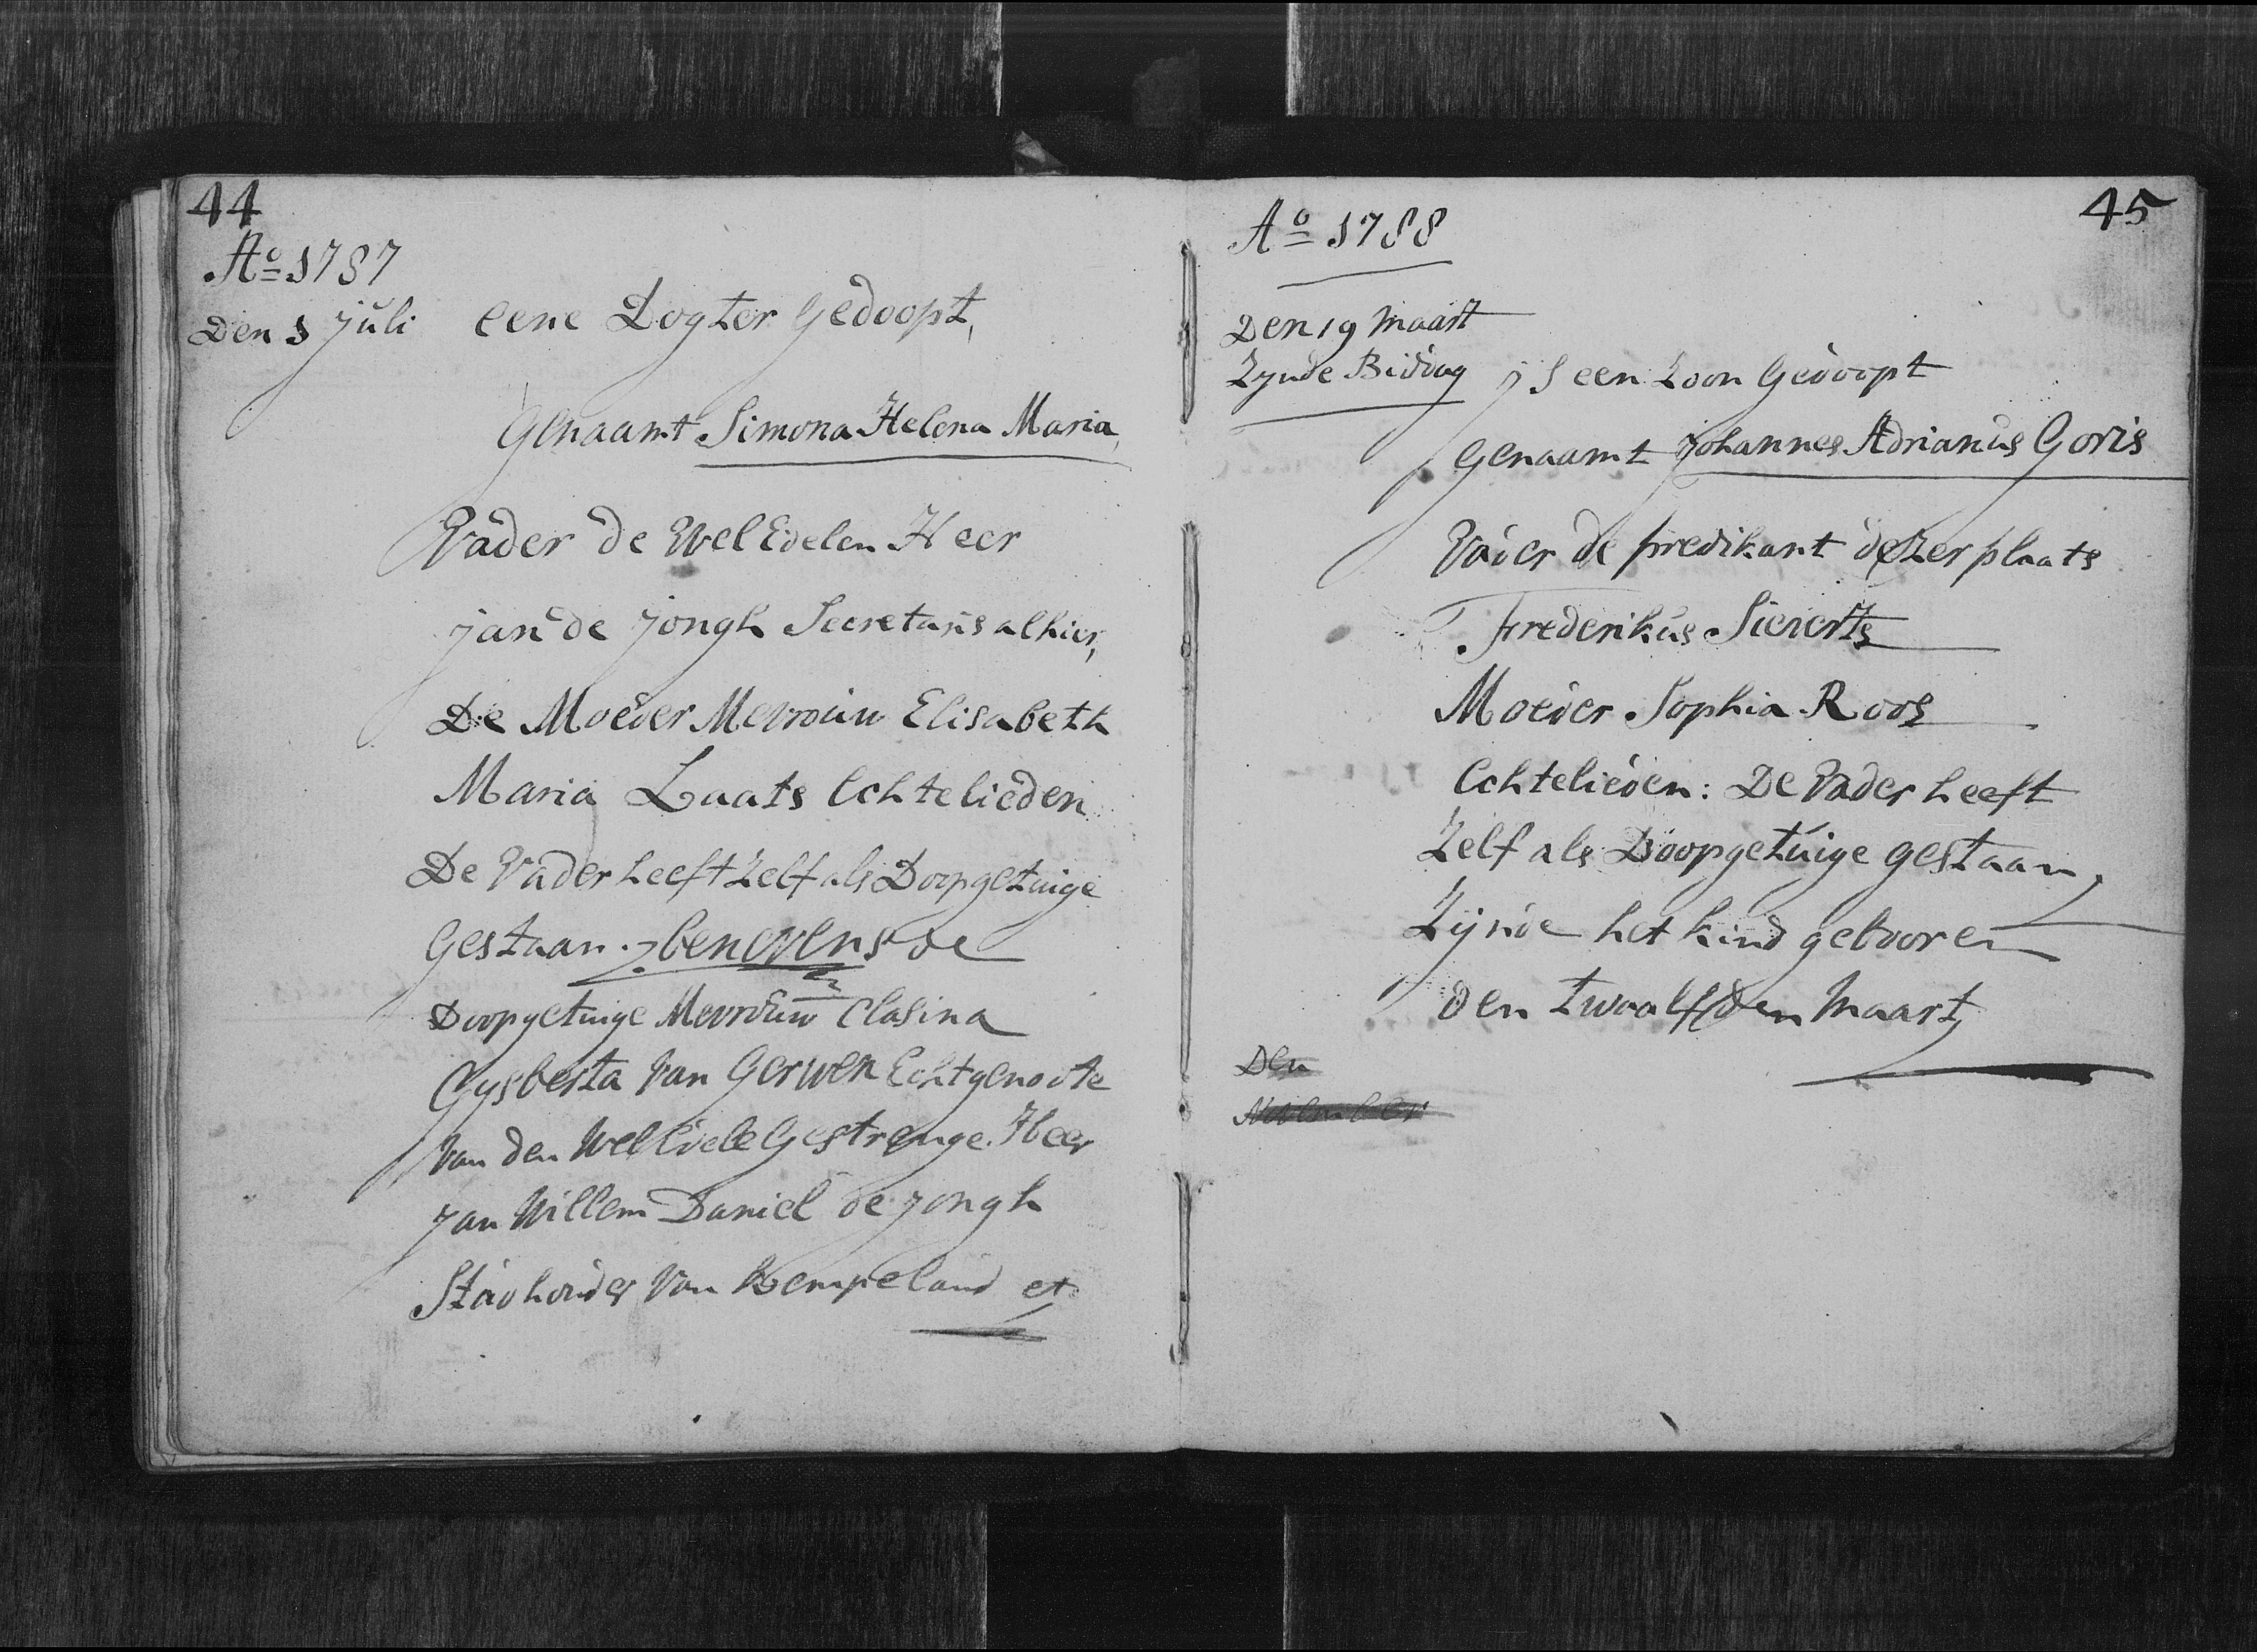 44
Ao 1787
Den 1 Juli eene Dogter Gedoopt,
Genaamt Simona Helena Maria,
Vader de Wel Edelen Heer
Jan de Jongh Secretaris alhier,
De Moeder Mevrouw Elisabeth
Maria Laats Echtelieden
De Vader heeft Zelf als Doopgetuige
Gestaan benevens de
Doopgetuige Mevrouw Clasina
Gysberta Van Gerwen Echtgenoote
Van den Wel Edele Gestrenge Heer
Jan Willem Daniel de Jongh
Stadhouder Van Kempeland etc
45
Ao 1788
Den 19 Maart
Zynde Biddag is een Zoon Gedoopt
Genaamt Johannes Adrianus Goris
Vader de predikant dezer plaats
Frederikus Sieverts
Moeder Sophia Roos
Echtelieden: De Vader heeft
Zelf als Doopgetuige gestaan,
Zijnde het kind gebooren
den twaalfden Maart
Den
November